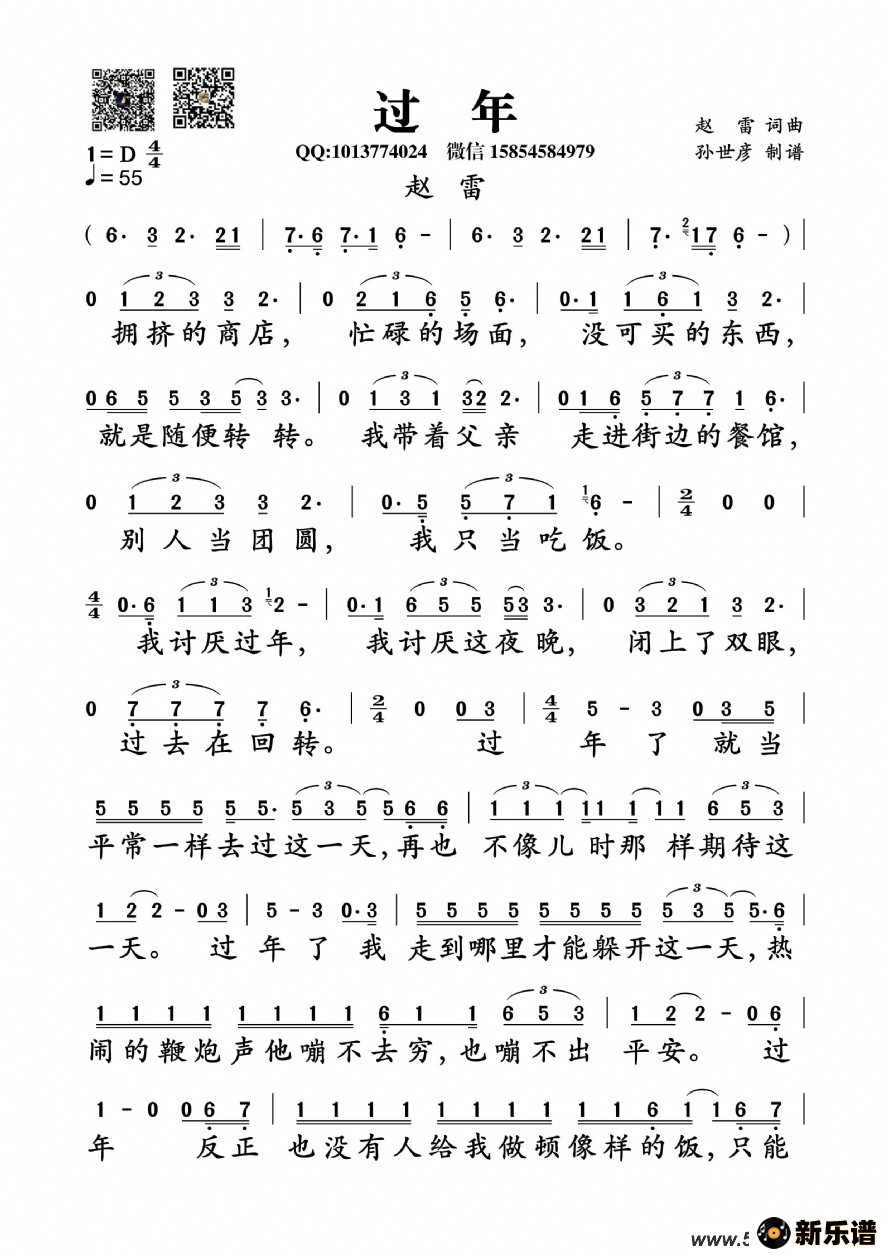 过 年
赵 雷 词曲
1=D 4/4
QQ:1013774024 微信 15854584979
孙世彦 制谱
♩=55
赵 雷
( 6· 3 2· 21 | 7·6 7·1 6 - | 6· 3 2· 21 | 7· 2 17 6 - ) |
0 1 2 3 3 2· | 0 2 1 6 5 6· | 0·1 1 6 1 3 2· |
拥挤的商店, 忙碌的场面, 没可买的东西,
0 6 5 5 3 5 3 3· | 0 1 3 1 32 2· | 0 1 6 5 7 7 1 6· |
就是随便转 转。 我带着父亲 走进街边的餐馆,
0 1 2 3 3 2· | 0·5 5 7 1 1 6 - | 2/4 0 0 |
别人当团圆, 我只当吃饭。
4/4 0·6 1 1 3 1 2 - | 0·1 6 5 5 53 3· | 0 3 2 1 3 2· |
我讨厌过年, 我讨厌这夜晚, 闭上了双眼,
0 7 7 7 7 6· | 2/4 0 03 | 4/4 5 - 3 0 3 5 |
过去在回转。 过 年 了 就当
5 5 5 5 5 5· 5 3 5 5 6 6 | 1 1 1 11 1 1 6 5 3 |
平常一样去过这一天,再也 不像儿时那 样期待这
1 2 2 - 03 | 5 - 3 0·3 | 5 5 5 5 5 5 5 5 5 3 5 5·6 |
一天。 过年了我 走到哪里才能躲开这一天,热
1 1 1 1 1 1 1 1 6 1 1 6 5 3 | 1 2 2 - 06 |
闹的鞭炮声他嘣不去穷,也嘣不出 平安。 过
1 - 0 0 6 7 | 1 1 1 1 1 1 1 1 1 1 6 1 1 6 7 |
年 反正 也没有人给我做顿像样的饭,只能
www.5
新乐谱